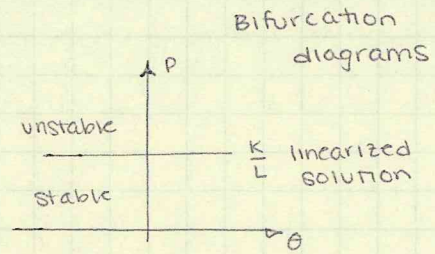 Bifurcation
diagrams
P
unstable
K/L linearized
solution
stable
θ